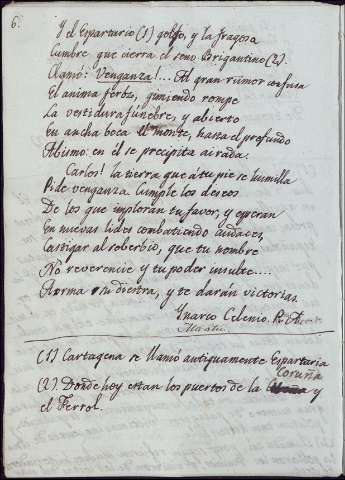 6.
Y el Espartario (1) golfo, y la fragosa
Cumbre que cierra el seno Brigantino (2).
Clamó: Venganza!... Al gran rumor confusa
El anima feroz, gimiendo rompe
La vestidura fúnebre, y abierto
En ancha boca el monte, hasta el profundo
Abismo: en él se precipita airada.
Carlos! la tierra que á tu pie se humilla
Pide venganza. Cumple los deseos
De los que imploran tu favor, y esperan
En nuevas lides combatiendo audaces,
Castigar al soberbio, que tu nombre
No reverencie y tu poder insulte....
Arma tu diestra, y te darán victorias.
Ynarco Celenio. P. A.
(1) Cartagena se llamó antiguamente Espartaria
(2) Donde hoy estan los puertos de la Coruña y
el Ferrol.